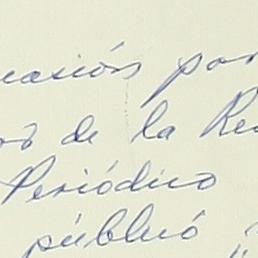 casión por
de la Re
Periódico
públicó